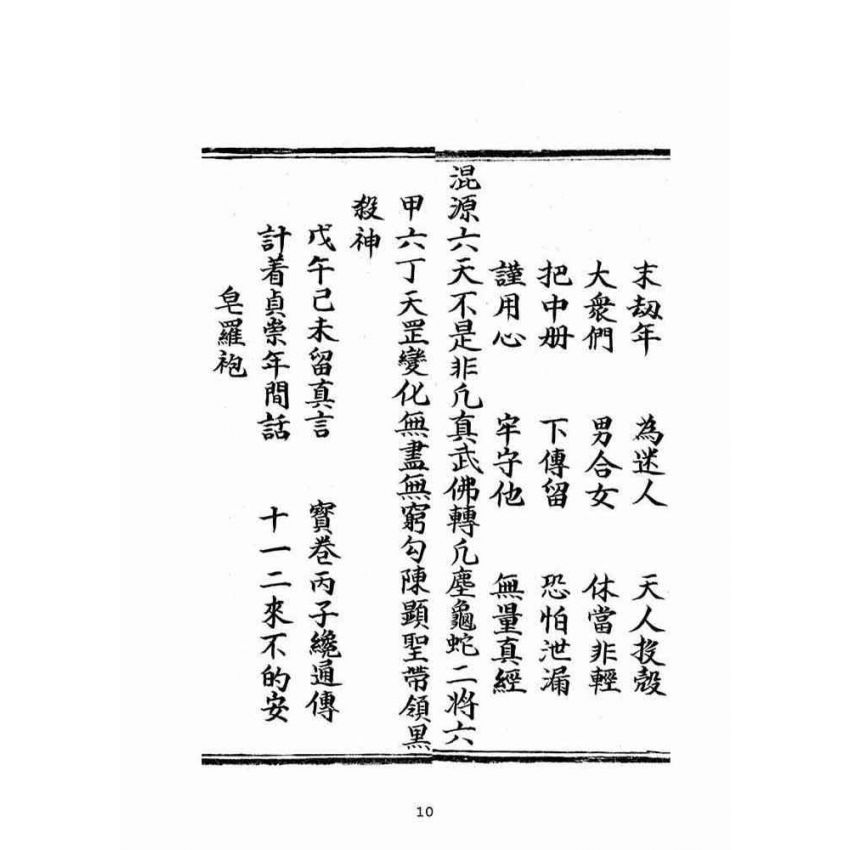 末劫年 為迷人 天人投殼
大衆們 男合女 休當非輕
把中册 下傳留 恐怕泄漏
謹用心 牢守他 無量真經
混源六天不是非凢真武佛轉凢塵龜蛇二將六
甲六丁天罡變化無盡無窮勾陳顕聖帶領黑
殺神
戊午己未留真言 寳卷丙子纔通傳
計着貞崇年間話 十一二來不的安
皂羅袍
10